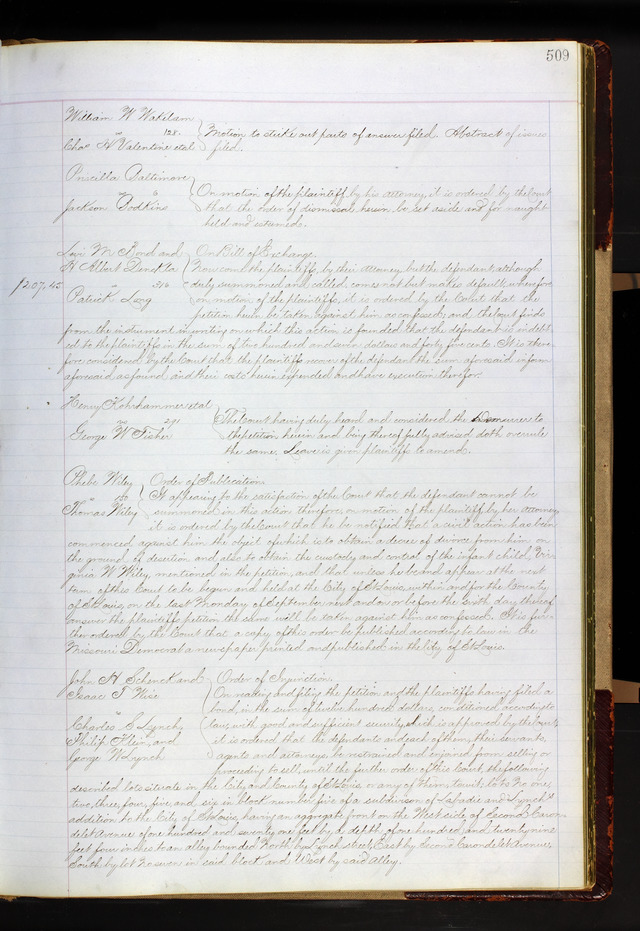 509
William W Wakelam
vs 128.
Chas H Valentine etal
Motion to strike out parts of answer filed. Abstract of issues
filed.
Priscilla Baltimore
vs
Jackson Bodkins
On motion of the plaintiff by his attorney, it is ordered by the Court
that the order of dismissal herein be set aside and for naught
held and esteemed.
Levi M Bond and
H Albert
vs 316
Patrick Long
$207,45
On Bill of Exchange.
Now come the plaintiffs, by their Attorney, but the defendant although
duly summoned and called, comes not but makes default; wherefore
on motion of the plaintiffs, it is ordered by the Court that the
petition herein be taken against him as confessed; and the Court finds
from the instrument in writing on which this action is founded that the defendant is indebt
ed to the plaintiffs in the sum of two hundred and seven dollars and forty five cents. It is there
fore considered by the Court that the plaintiffs recover of the defendant the sum aforesaid in form
aforesaid as found and their costs herein expended and have execution therefor.
Henry Kohrhammer etal
vs 291
George W Fisher
The Court having duly heard and considered the Demurrer to
the petition herein and being thereof fully advised doth overrule
the same. Leave is given plaintiffs to amend.
Phebe Wiley
vs
Thomas Wiley
Order of Publication.
It appearing to the satisfaction of the Court that the defendant cannot be
summoned in this action, therefore, on motion of the plaintiff by her attorney
it is ordered by the Court that he be notified that a civil action has been
commenced against him the object of which is to obtain a decree of divorce from him on
the ground of desertion and also to obtain the custody and control of the infant child, Vir
ginia W Wiley, mentioned in the petition, and that unless he be and appear at the next
term of this Court to be begun and held at the City of St Louis, within and for the County
of St Louis, on the last Monday of September next and on or before the sixth day thereof
answer the plaintiffs petition the same will be taken against him as confessed. It is fur
ther ordered by the Court that a copy of this order be published according to law in the
Missouri Democrat a newspaper printed and published in the City of St Louis.
John H Schenck and
Isaac T Wise
vs
Charles C Lynch,
Philip Klein, and
George W Lynch
Order of Injunction.
On reading and filing the petition and the plaintiffs having filed a
bond, in the sum of twelve hundred dollars, conditioned according to
law, with good and sufficient security, which is approved by the Court,
it is ordered that the defendants and each of them, their servants,
agents and attorneys be restrained and enjoined from selling or
proceeding to sell, until the further order of this Court, the following
described lots situate in the City and County of St Louis or any of them, to wit: lots No one,
two, three, four, five, and six in block number five of a subdivision of Labadie and Lynch's
addition to the City of St Louis, having an aggregate front on the West side of Second Caron
delet Avenue of one hundred and seventy one feet by a depth of one hundred and twenty nine
feet four inches to an alley bounded North by Lynch street, East by Second Carondelet Avenue,
South by lot No seven in said block and West by said Alley.